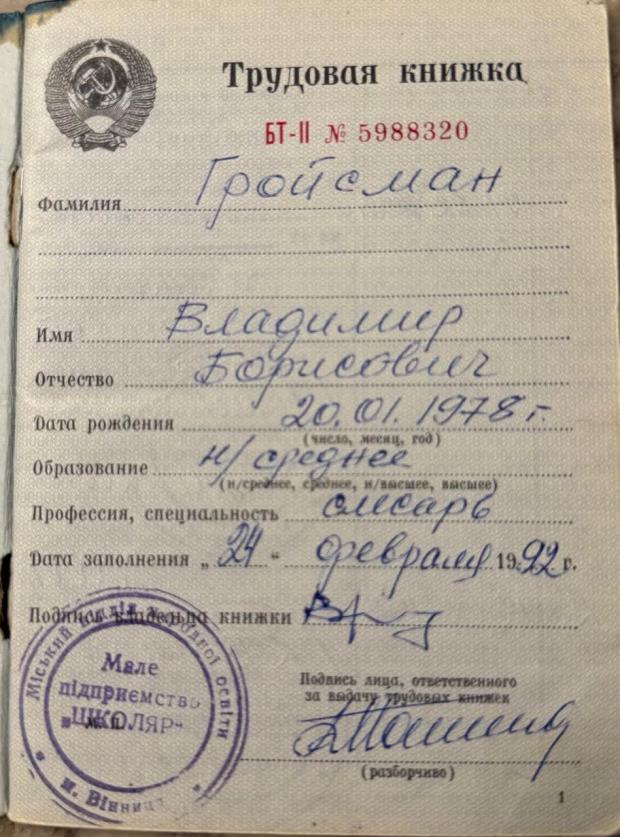 Трудовая книжка
БТ-II № 5988320
Фамилия Гройсман
Имя Владимир
Отчество Борисович
Дата рождения 20.01.1978 г.
(число, месяц, год)
Образование н/среднее
(н/среднее, среднее, н/высшее, высшее)
Профессия, специальность слесарь
Дата заполнения „24“ февраля 1992 г.
Подпись владельца книжки
Міський відділ народної освіти
Мале
підприємство
"ШКОЛЯР"
М. П.
м. Вінниця
Подпись лица, ответственного
за выдачу трудовых книжек
(разборчиво)
1